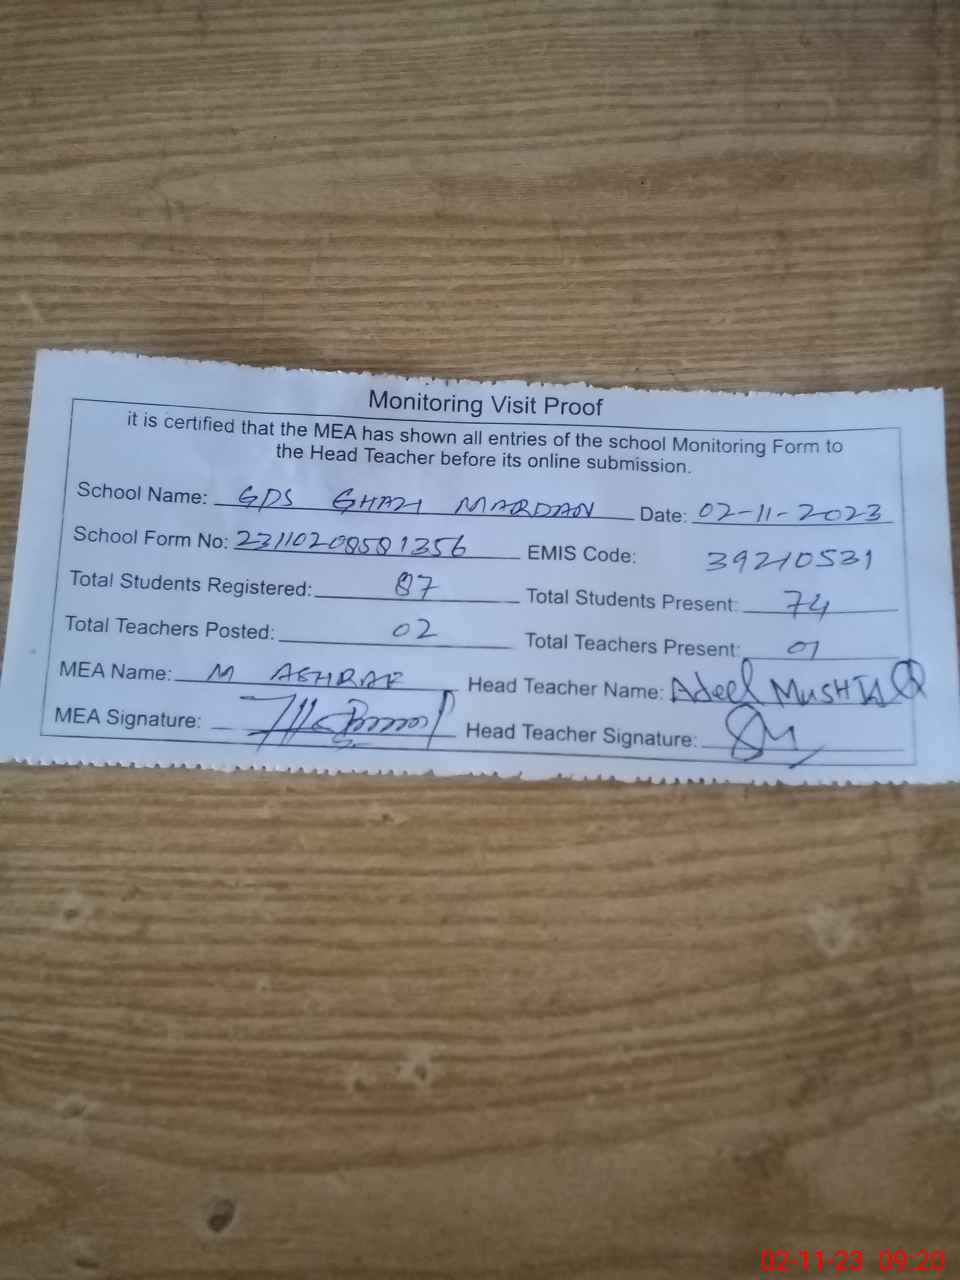 Monitoring Visit Proof
it is certified that the MEA has shown all entries of the school Monitoring Form to
the Head Teacher before its online submission.
School Name: GPS GHAZI MARDAN Date: 02-11-2023
School Form No: 23110208581356 EMIS Code: 39210531
Total Students Registered: 87 Total Students Present: 74
Total Teachers Posted: 02 Total Teachers Present: 01
MEA Name: M ASHRAF Head Teacher Name: Adeel MUSHTAQ
MEA Signature: Head Teacher Signature:
02-11-23 09:20